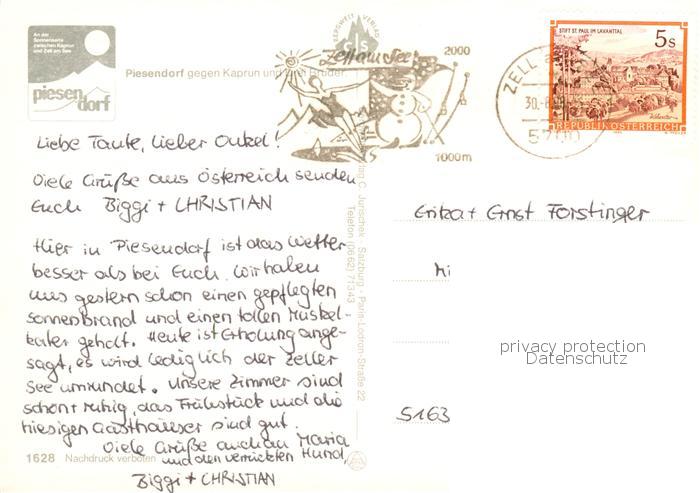 An der
Sonnenseite
zwischen Kaprun
und Zell am See
piesendorf
Piesendorf gegen Kaprun und Drei Brüder.
BERGWELT VERLAG
CJS
Zell am See
2000
1000m
ZELL
30.-8.
5700
STIFT ST. PAUL IM LAVANTTAL
5s
REPUBLIK ÖSTERREICH
Liebe Tante, lieber Onkel!
Viele Grüße aus Österreich senden
Euch Biggi + CHRISTIAN
Hier in Piesendorf ist das Wetter
besser als bei Euch. Wir haben
uns gestern schon einen gepflegten
Sonnenbrand und einen tollen Muskel-
kater geholt. Heute ist Erholung ange-
sagt, es wird lediglich der Zeller
See umrundet. Unsere Zimmer sind
schön + ruhig, das Frühstück und die
hiesigen Gasthäuser sind gut.
Viele Grüße auch an Maria
und den verrückten Hund,
Biggi + CHRISTIAN
1628 Nachdruck verboten
Verlag C. Jurischek · Salzburg · Paris-Lodron-Straße 22
Telefon (0662) 71343
Erika + Ernst Forstinger
Mi
privacy protection
Datenschutz
5163